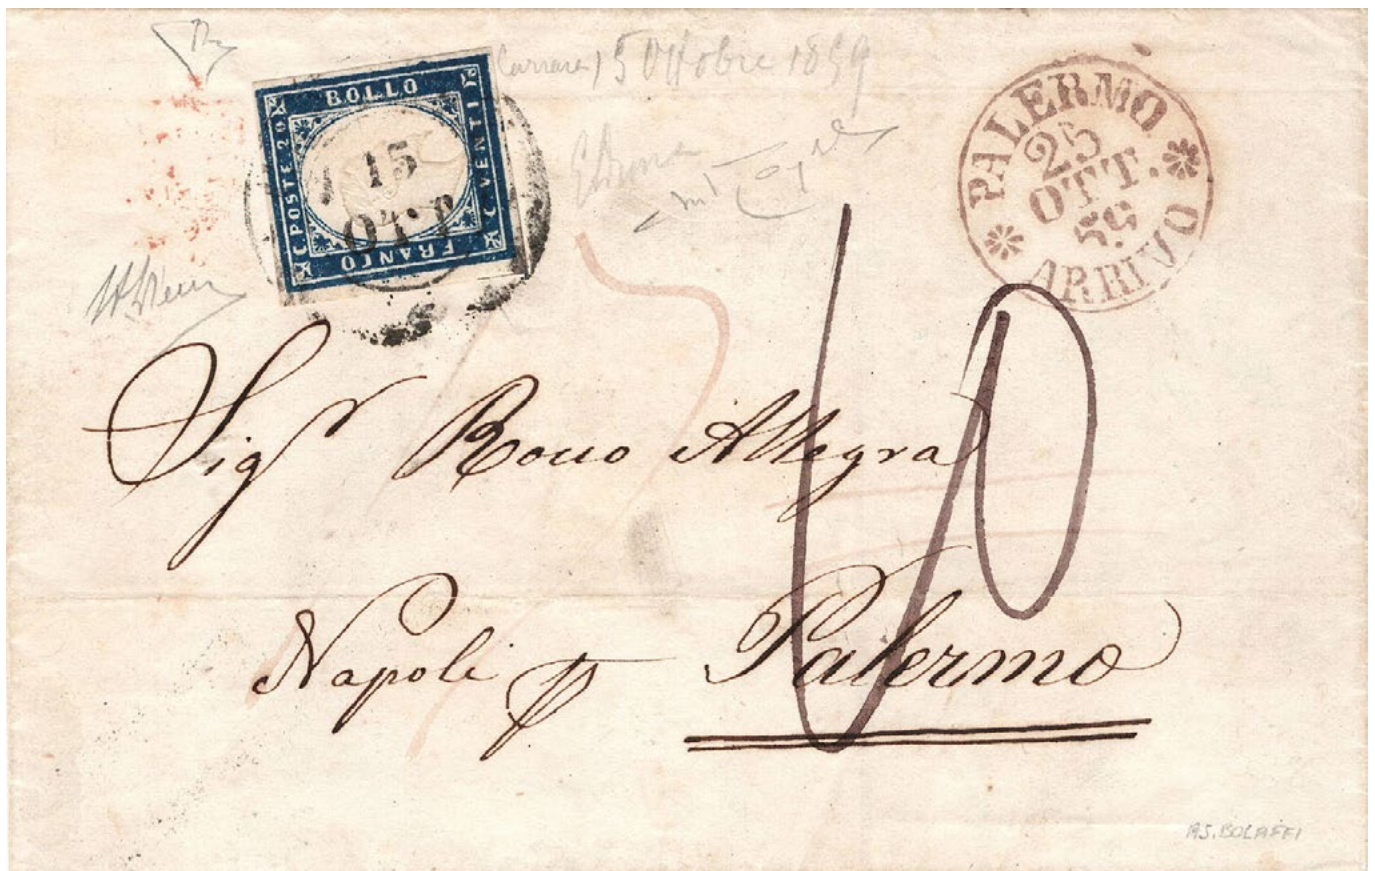 15 Ottobre 1859
BOLLO
C. POSTE 20
C. VENTI
FRANCO
15
OTT
PALERMO
25
OTT.
59
ARRIVO
10
Sigr Rocco Allegra
Napoli p Palermo
A.S. BOLAFFI